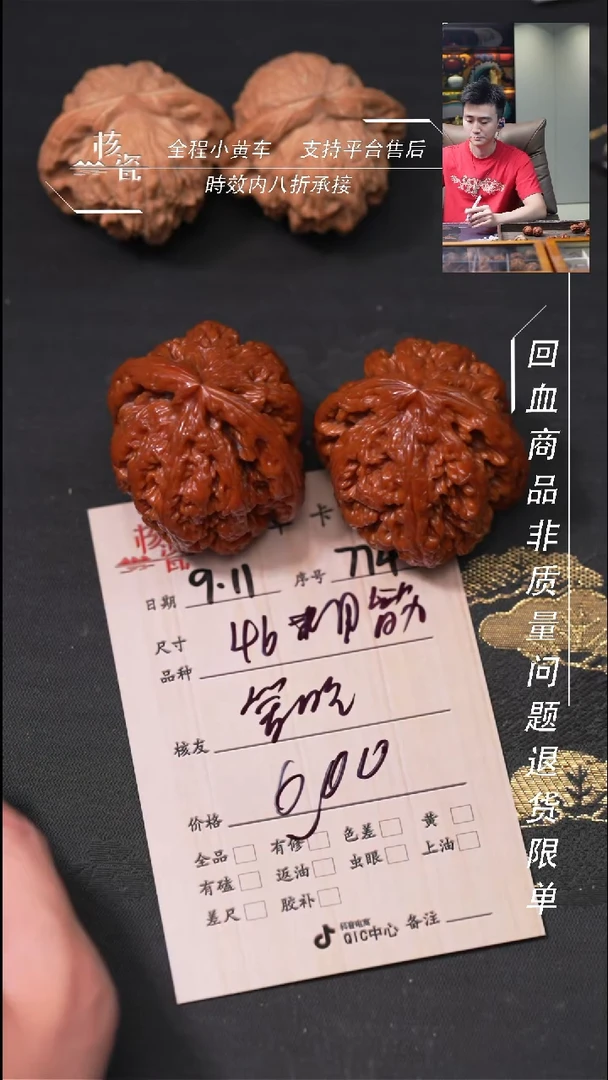 核瓷
全程小黄车 支持平台售后
時效内八折承接
回血商品非质量问题退货限单
核瓷
卡
日期 9.11 序号 774
尺寸 46
品种
核友
价格 600
全品 有修 色差 黄
有磕 返油 虫眼 上油
差尺 胶补
抖音电商
QIC中心 备注